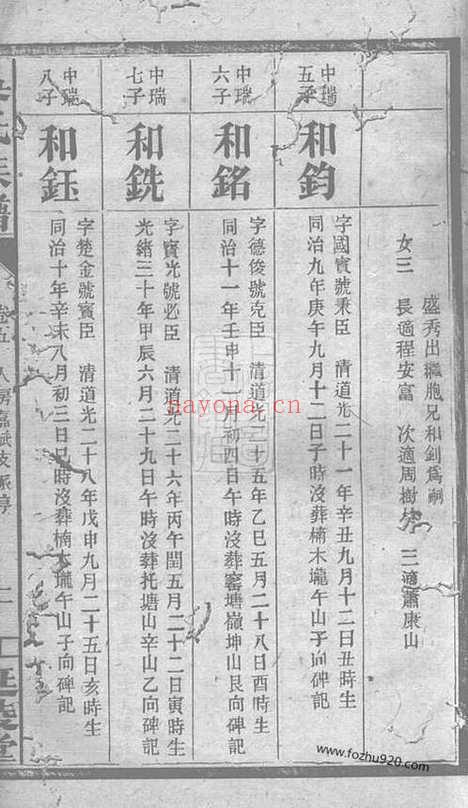 盛秀出繼胞兄和釗爲嗣
女三 長適程安富 次適周樹 三適蕭康山
中瑞五子
和鈞
字國賓號秉臣 清道光二十一年辛丑九月十二日丑時生
同治九年庚午九月十二日子時沒葬楠木壠午山子向碑記
中瑞六子
和銘
字德俊號克臣 清道光二十五年乙巳五月二十八日酉時生
同治十一年壬申十一月初四日午時沒葬窰塘嶺坤山艮向碑記
中瑞七子
和銑
字寶光號必臣 清道光二十六年丙午閏五月二十二日寅時生
光緒三十年甲辰六月二十九日午時沒葬托塘山辛山乙向碑記
中瑞八子
和鈺
字楚金號寶臣 清道光二十八年戊申九月二十五日亥時生
同治十年辛未八月初三日巳時沒葬楠木壠午山子向碑記
氏族譜
卷五 人房嘉斌支派
nayona.cn
www.fozhu920.com